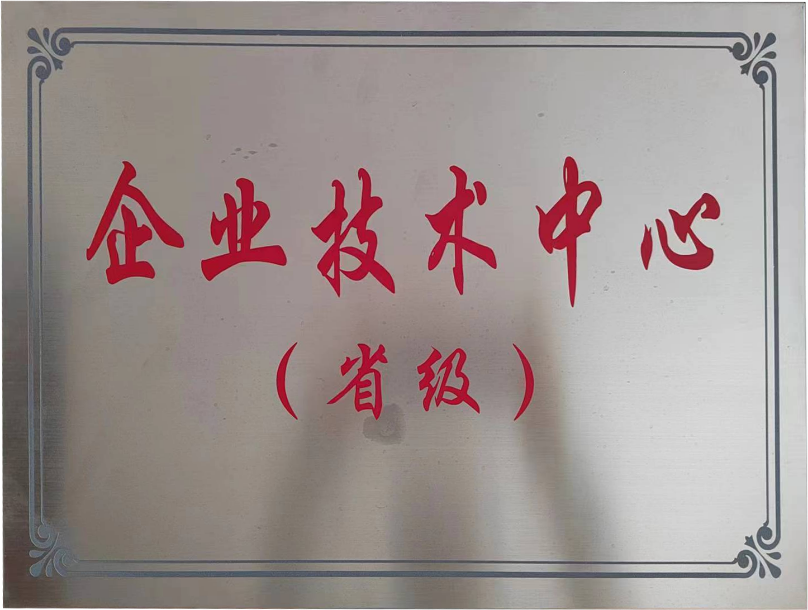 企业技术中心
（省级）